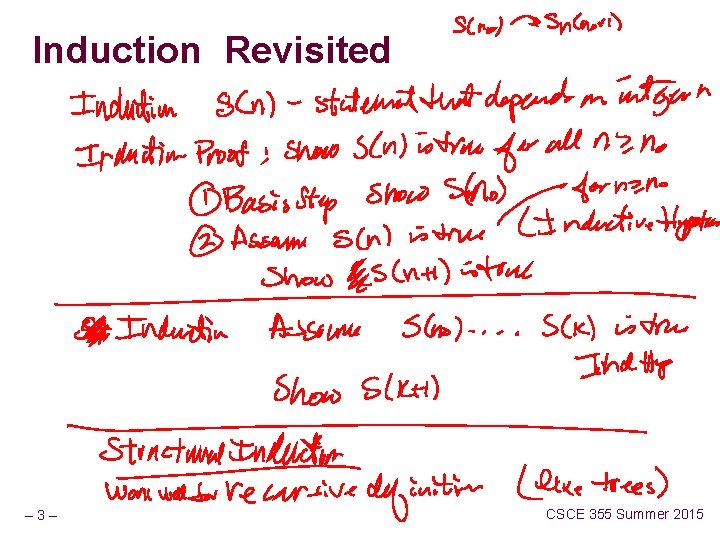 Induction Revisited
S(n₀) → Sn(n₀+1)
Induction S(n) - statement that depends on integer n
Induction Proof: Show S(n) is true for all n ≥ n₀
① Basis Step Show S(n₀)
② Assum S(n) is true for n ≥ n₀ (Inductive
Show S(n+1) is true
Induction Assume S(n₀) .... S(k) is true
Ind Hyp
Show S(k+1)
Structural Induction
Work well for recursive definition (like trees)
– 3 –
CSCE 355 Summer 2015